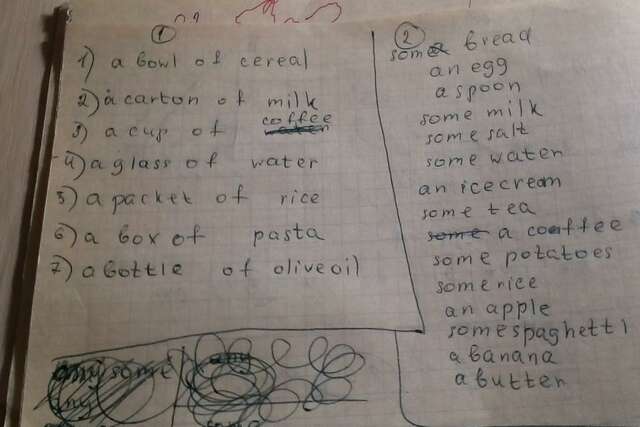 1
1) a bowl of cereal
2) a carton of milk
coffee
3) a cup of
4) a glass of water
5) a packet of rice
6) a box of pasta
7) a bottle of olive oil
2
some bread
an egg
a spoon
some milk
some salt
some water
an icecream
some tea
some a coffee
some potatoes
some rice
an apple
some spaghetti
a banana
a butter
any some
any
any